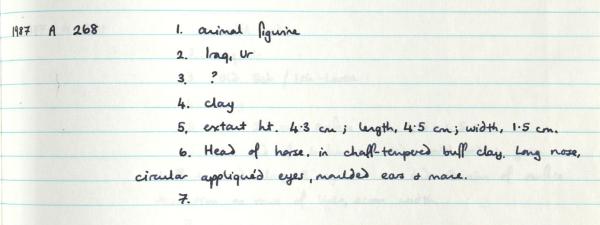 1987 A 268 1. animal figurine
2. Iraq, Ur
3. ?
4. clay
5. extant ht. 4.3 cm; length, 4.5 cm; width, 1.5 cm.
6. Head of horse. in chaff-tempered buff clay. Long nose,
circular appliqué'd eyes, moulded ears & mane.
7.